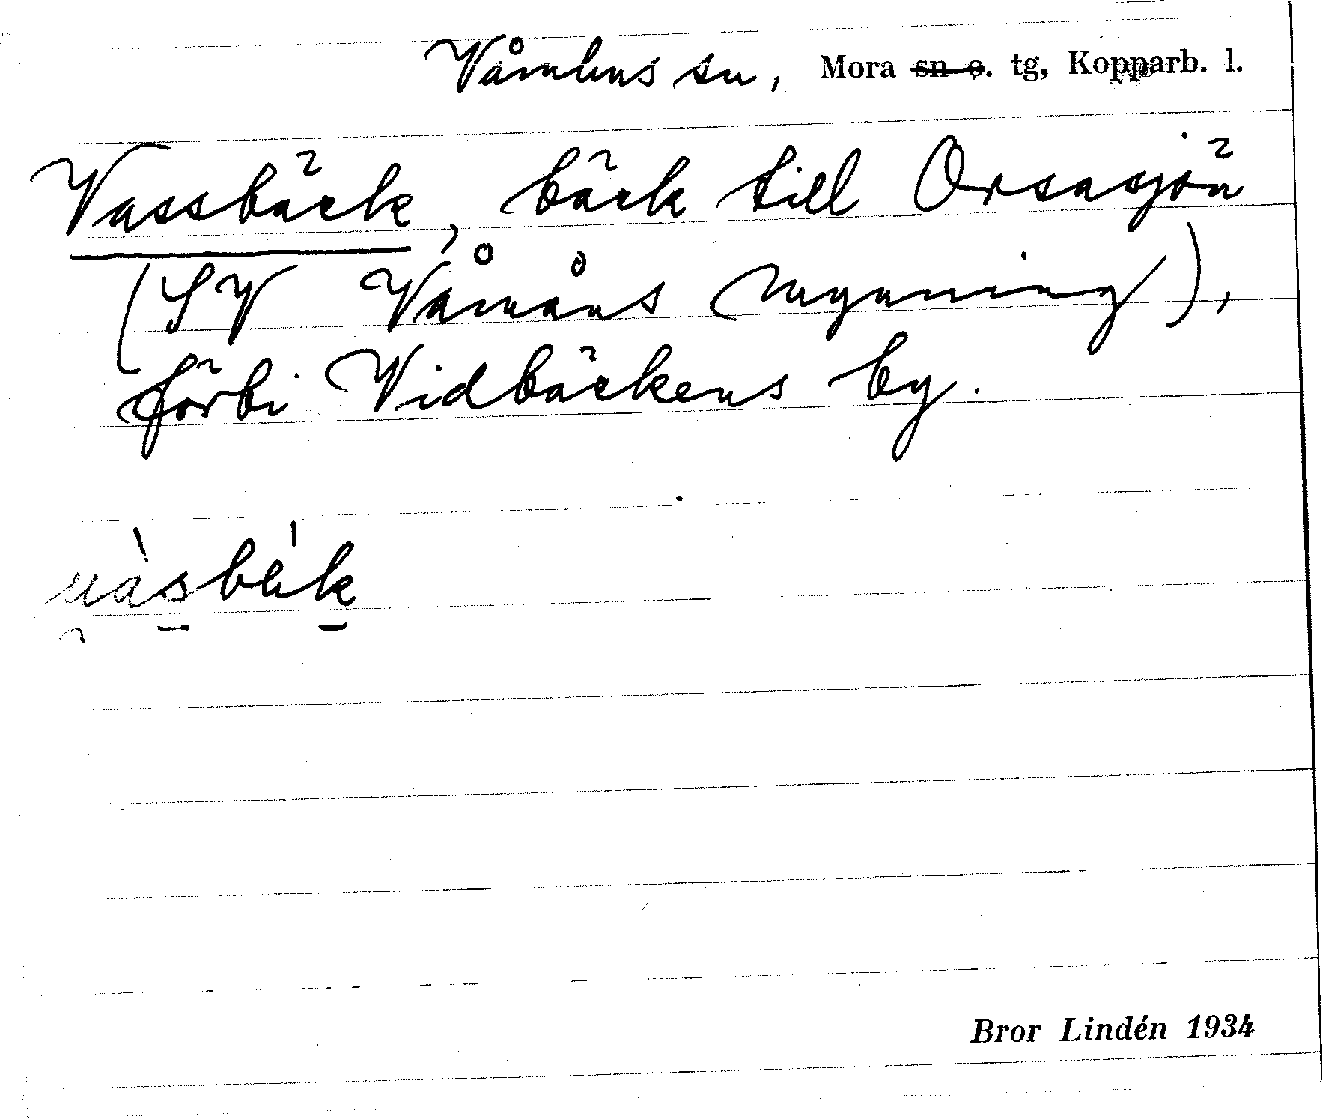 Våmhus sn, Mora sn o. tg, Kopparb. l.
Vassbäck, bäck till Orsasjön
(SV Våmåns mynning),
förbi Vidbäckens by.
Bror Lindén 1934